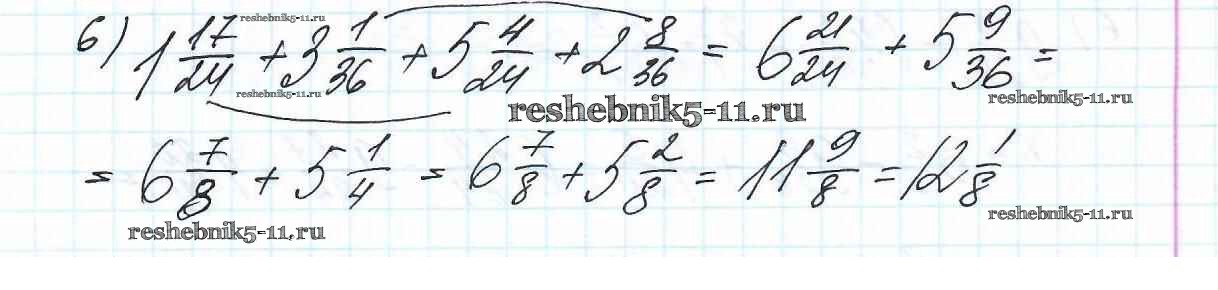 6) 1 17/24 + 3 1/36 + 5 4/24 + 2 8/36 = 6 21/24 + 5 9/36 =
= 6 7/8 + 5 1/4 = 6 7/8 + 5 2/8 = 11 9/8 = 12 1/8
reshebnik5-11.ru
reshebnik5-11.ru
reshebnik5-11.ru
reshebnik5-11.ru
reshebnik5-11.ru
reshebnik5-11.ru